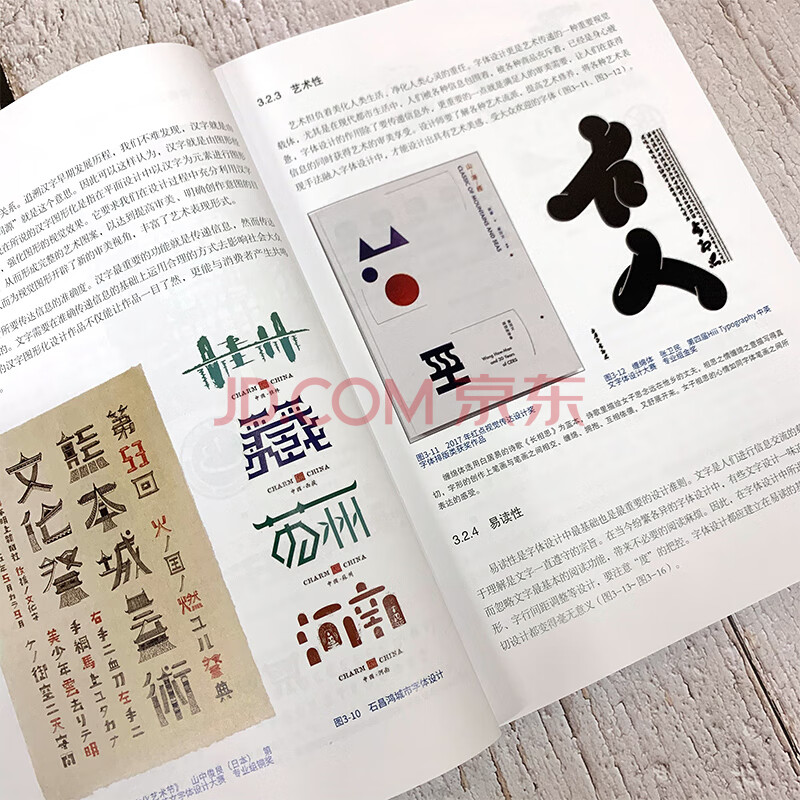 关系。追溯汉字早期发展历程，我们不难发现，汉字就是由
同源”就是这个意思。因此可以这样认为，汉字就是由图形
在所说的汉字图形化是指在平面设计中以汉字为元素进行图形
，强化图形的视觉效果，它要求我们在设计过程中充分利用汉字
，从而形成完整的艺术图案，以达到提高审美、明确创作意图的目
从而为视觉图形开辟了新的审美视角，丰富了艺术表现形式。
所要传达信息的准确度。汉字最重要的功能就是传递信息，然而传达
的。文字需要在准确传递信息的基础上运用合理的方式去影响社会大众
的汉字图形化设计作品不仅能让作品一目了然，更能与消费者产生共鸣
桂林
CHARM CHINA
中国·桂林
藏
CHARM CHINA
中国·西藏
苏州
CHARM CHINA
中国·苏州
河南
CHARM CHINA
中国·河南
图3-10 石昌鸿城市字体设计
第53回
熊本城
文化祭
芸術
火ノ国ノ燃ユル祭典
右手ニ血刀左手ニ
手綱馬上ユタカナ
美少年雲去リテ明
ケノ街空ニ天守閣
化艺术节》 山中俊良（日本） 第
文字体设计大赛 专业组铜奖
3.2.3 艺术性
艺术担负着美化人类生活、净化人类心灵的重任。字体设计更是艺术传递的一种重要视觉
载体，尤其是在现代都市生活中，人们被各种信息包围着，被各种商品充斥着，已经是身心疲
惫，字体设计的作用除了要传递信息外，更重要的一点就是满足人的审美需要，让人们在获得
信息的同时获得艺术的审美享受。设计师要了解各种艺术流派，提高艺术修养，将各种艺术表
现手法融入字体设计中，才能设计出具有艺术美感、受大众欢迎的字体（图3-11、图3-12）。
山海经
CLASSIC OF MOUNTAINS AND SEAS
and 20 Years
of CERS
图3-11 2017年红点视觉传达设计奖
字体排版类获奖作品
图3-12 缠绵体 张卫民 第四届Hiii Typography中英
文字体设计大赛 专业组金奖
缠绵体选用白居易的诗歌《长相思》为蓝本，诗歌里描绘女子思念远在他乡的丈夫，相思之情缠绵之意描写得真
切，字形的创作上笔画与笔画之间相交、缠绕、拥抱、互相依偎，又舒展开来。女子相思的心情如同字体笔画之间所
表达的感受。
3.2.4 易读性
易读性是字体设计中最基础也是最重要的设计准则。文字是人们进行信息交流的
于理解是文字一直遵守的宗旨。在当今纷繁各异的字体设计中，有些文字设计一味
而忽略文字最基本的阅读功能，带来不必要的阅读麻烦。因此，在字体设计中
形、字行间距调整等设计，要注意“度”的把控。字体设计都应建立在易读的
切设计都变得毫无意义（图3-13~图3-16）。
JD.COM 京东